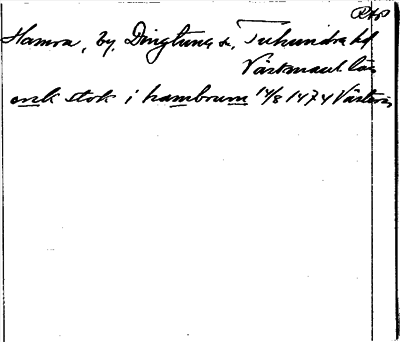 RAp
Hamra, by, Dingtuna s., Tuhundra hd
Västmanl. län
erik stok i hambrum 14/8 1474 Västerås